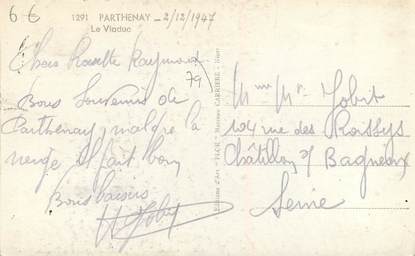 66
1291 PARTHENAY - 2/12/1947
Le Viaduc
Chers Rosette Raymond
79
Bons Souvenirs de
Parthenay, malgré la
neige il fait bon
Bons baisers
Jobit
Editions d'Art - FLOR - Maurice CARRIÈRE -
Mme Mr Jobit
104 rue des
Châtillon s/ Bagneux
Seine